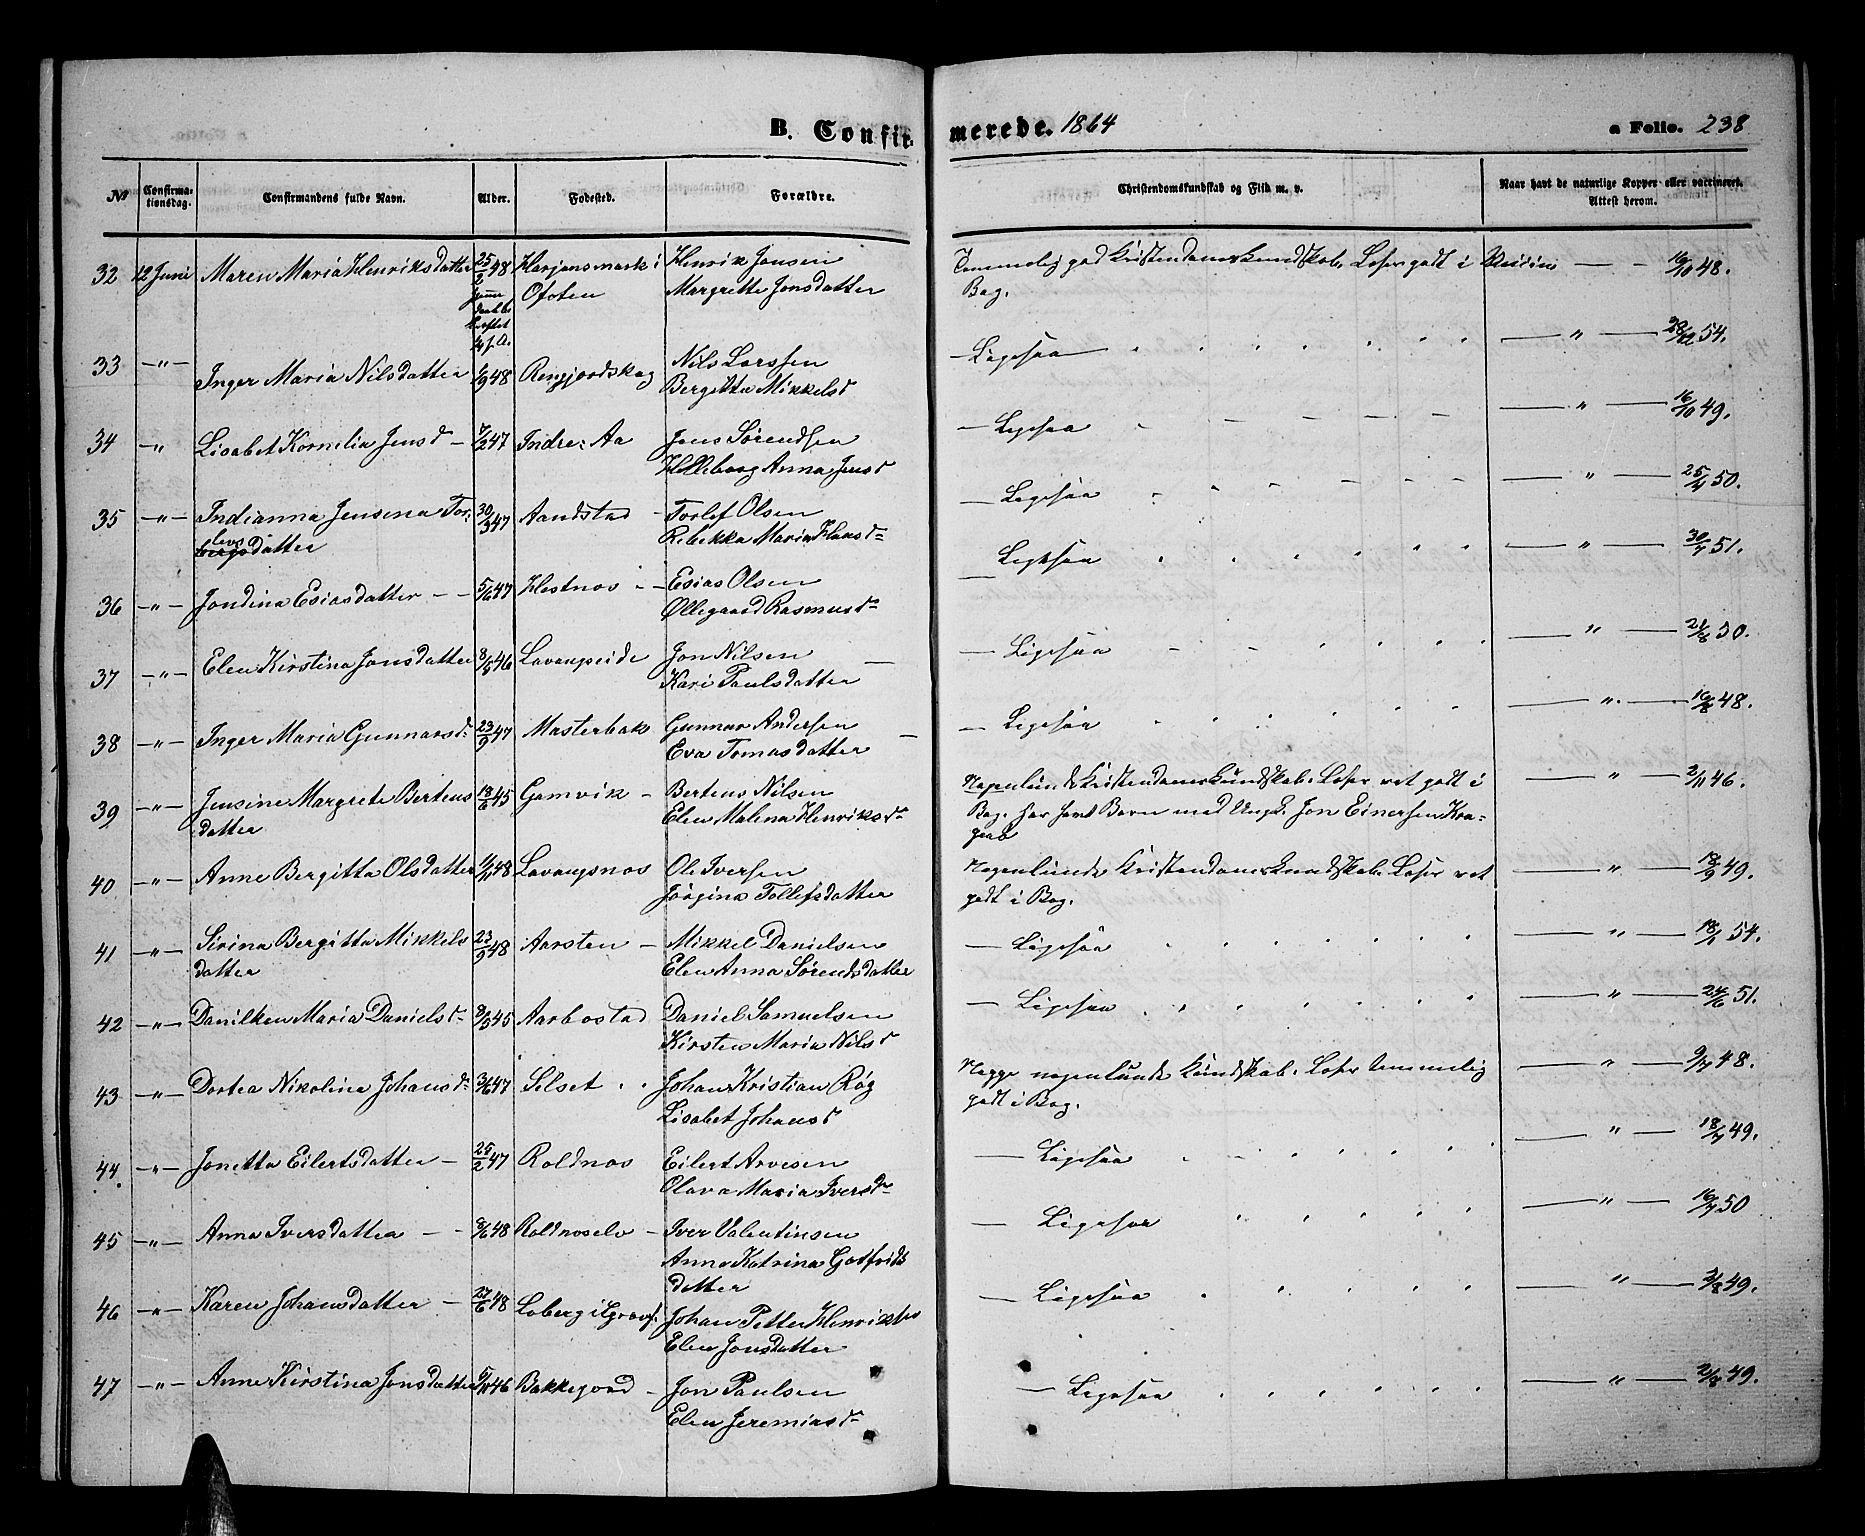 B. Confirmerede. 1864
a Folio. 238
№ Confirmationsdag. Confirmandens fulde Navn. Alder. Fødested. Forældre. Christendomskundskab og Flid m. v. Naar havt de naturlige Kopper eller vaccineret. Attest herom.
32 12 Juni Maren Maria Henriksdatter 25/2 48 Herjansmark i Henrik Jonsen Temmelig god Kristendomskundskab. Læser godt i
Ofoten Margrette Jonsdatter Bog. 16/10 48.
33 –"– Inger Maria Nilsdatter 1/9 48 Nils Larssen – Ligesaa – " – 54.
Bergitta Mikkelsd
34 –"– Lisabet Kornelia Jensd – 7/2 47 Indre-Aa Jens Sørendsen – Ligesaa – " – 16/10 49.
Anna Jensd
35 –"– Indianna Jensena Tor- 30/3 47 Aandstad Torlef Olsen – Ligesaa – " – 25/7 50.
levsdatter Rebekka Maria Hansd
36 –"– Jondina Esiasdatter – 5/6 47 Hestnes – Esias Olsen – Ligesaa – " – 30/7 51.
Øllegaard Rasmusd
37 –"– Elen Kirstina Jonsdatter 8/8 46 Lavangseide Jon Nilsen – Ligesaa – " – 50.
Kari Paulsdatter
38 –"– Inger Maria Gunnarsd 23/9 47 Masterbak Gunnar Andersen – Ligesaa – " – 16/8 48.
Eva Tomasdatter
39 –"– Jensine Margrete Berteus 18/6 45 Gamvik – Berteus Nilsen Nogenlunde Kristendomskundskab. Læser ret godt i – " – 2/11 46.
datter Elen Malena Henriksd Bog. Har havt Barn med Ungk. Jon Einersen Kra-
40 –"– Anne Bergitta Olsdatter 1/11 48 Lavangsnes Ole Iversen Nogenlunde Kristendomskundskab. Læser ret – " – 18/9 49.
Jørgina Tollefsdatter godt i Bog.
41 –"– Sirina Bergitta Mikkels 23/9 48 Aarsten – Mikkel Danielsen – Ligesaa – " – 18/1 54.
datter Elen Anna Sørendsdatter
42 –"– Danilken Maria Danielsd 8/8 45 Aarbostad Daniel Samuelsen – Ligesaa – " – 24/6 51.
Kirsten Maria Nilsd
43 –"– Dortea Nikolina Johansd 3/6 47 Selset Johan Kristian Røg Neppe nogenlunde Kundskab. Læser temmelig – " – 9/7 48.
Lisabet Johansd godt i Bog.
44 –"– Jonetta Eilertsdatter – 25/2 47 Roldnes Eilert Arvesen – Ligesaa – " – 18/7 49.
Olava Maria Iversd
45 –"– Anna Iversdatter – 8/6 48 Roldneselv – Iver Valentinsen – Ligesaa – " – 16/7 50
Anne Katrina Gotfrids
datter
46 –"– Karen Johansdatter – 27/6 48 Løberg i Johan Petter – Ligesaa – " – 3/8 49.
Elen Jonsdatter
47 –"– Anne Kirstina Jonsdatter 5/11 46 Bakkejord – Jon Paulsen – Ligesaa – " – 2/8 49.
Elen Jeremiasd